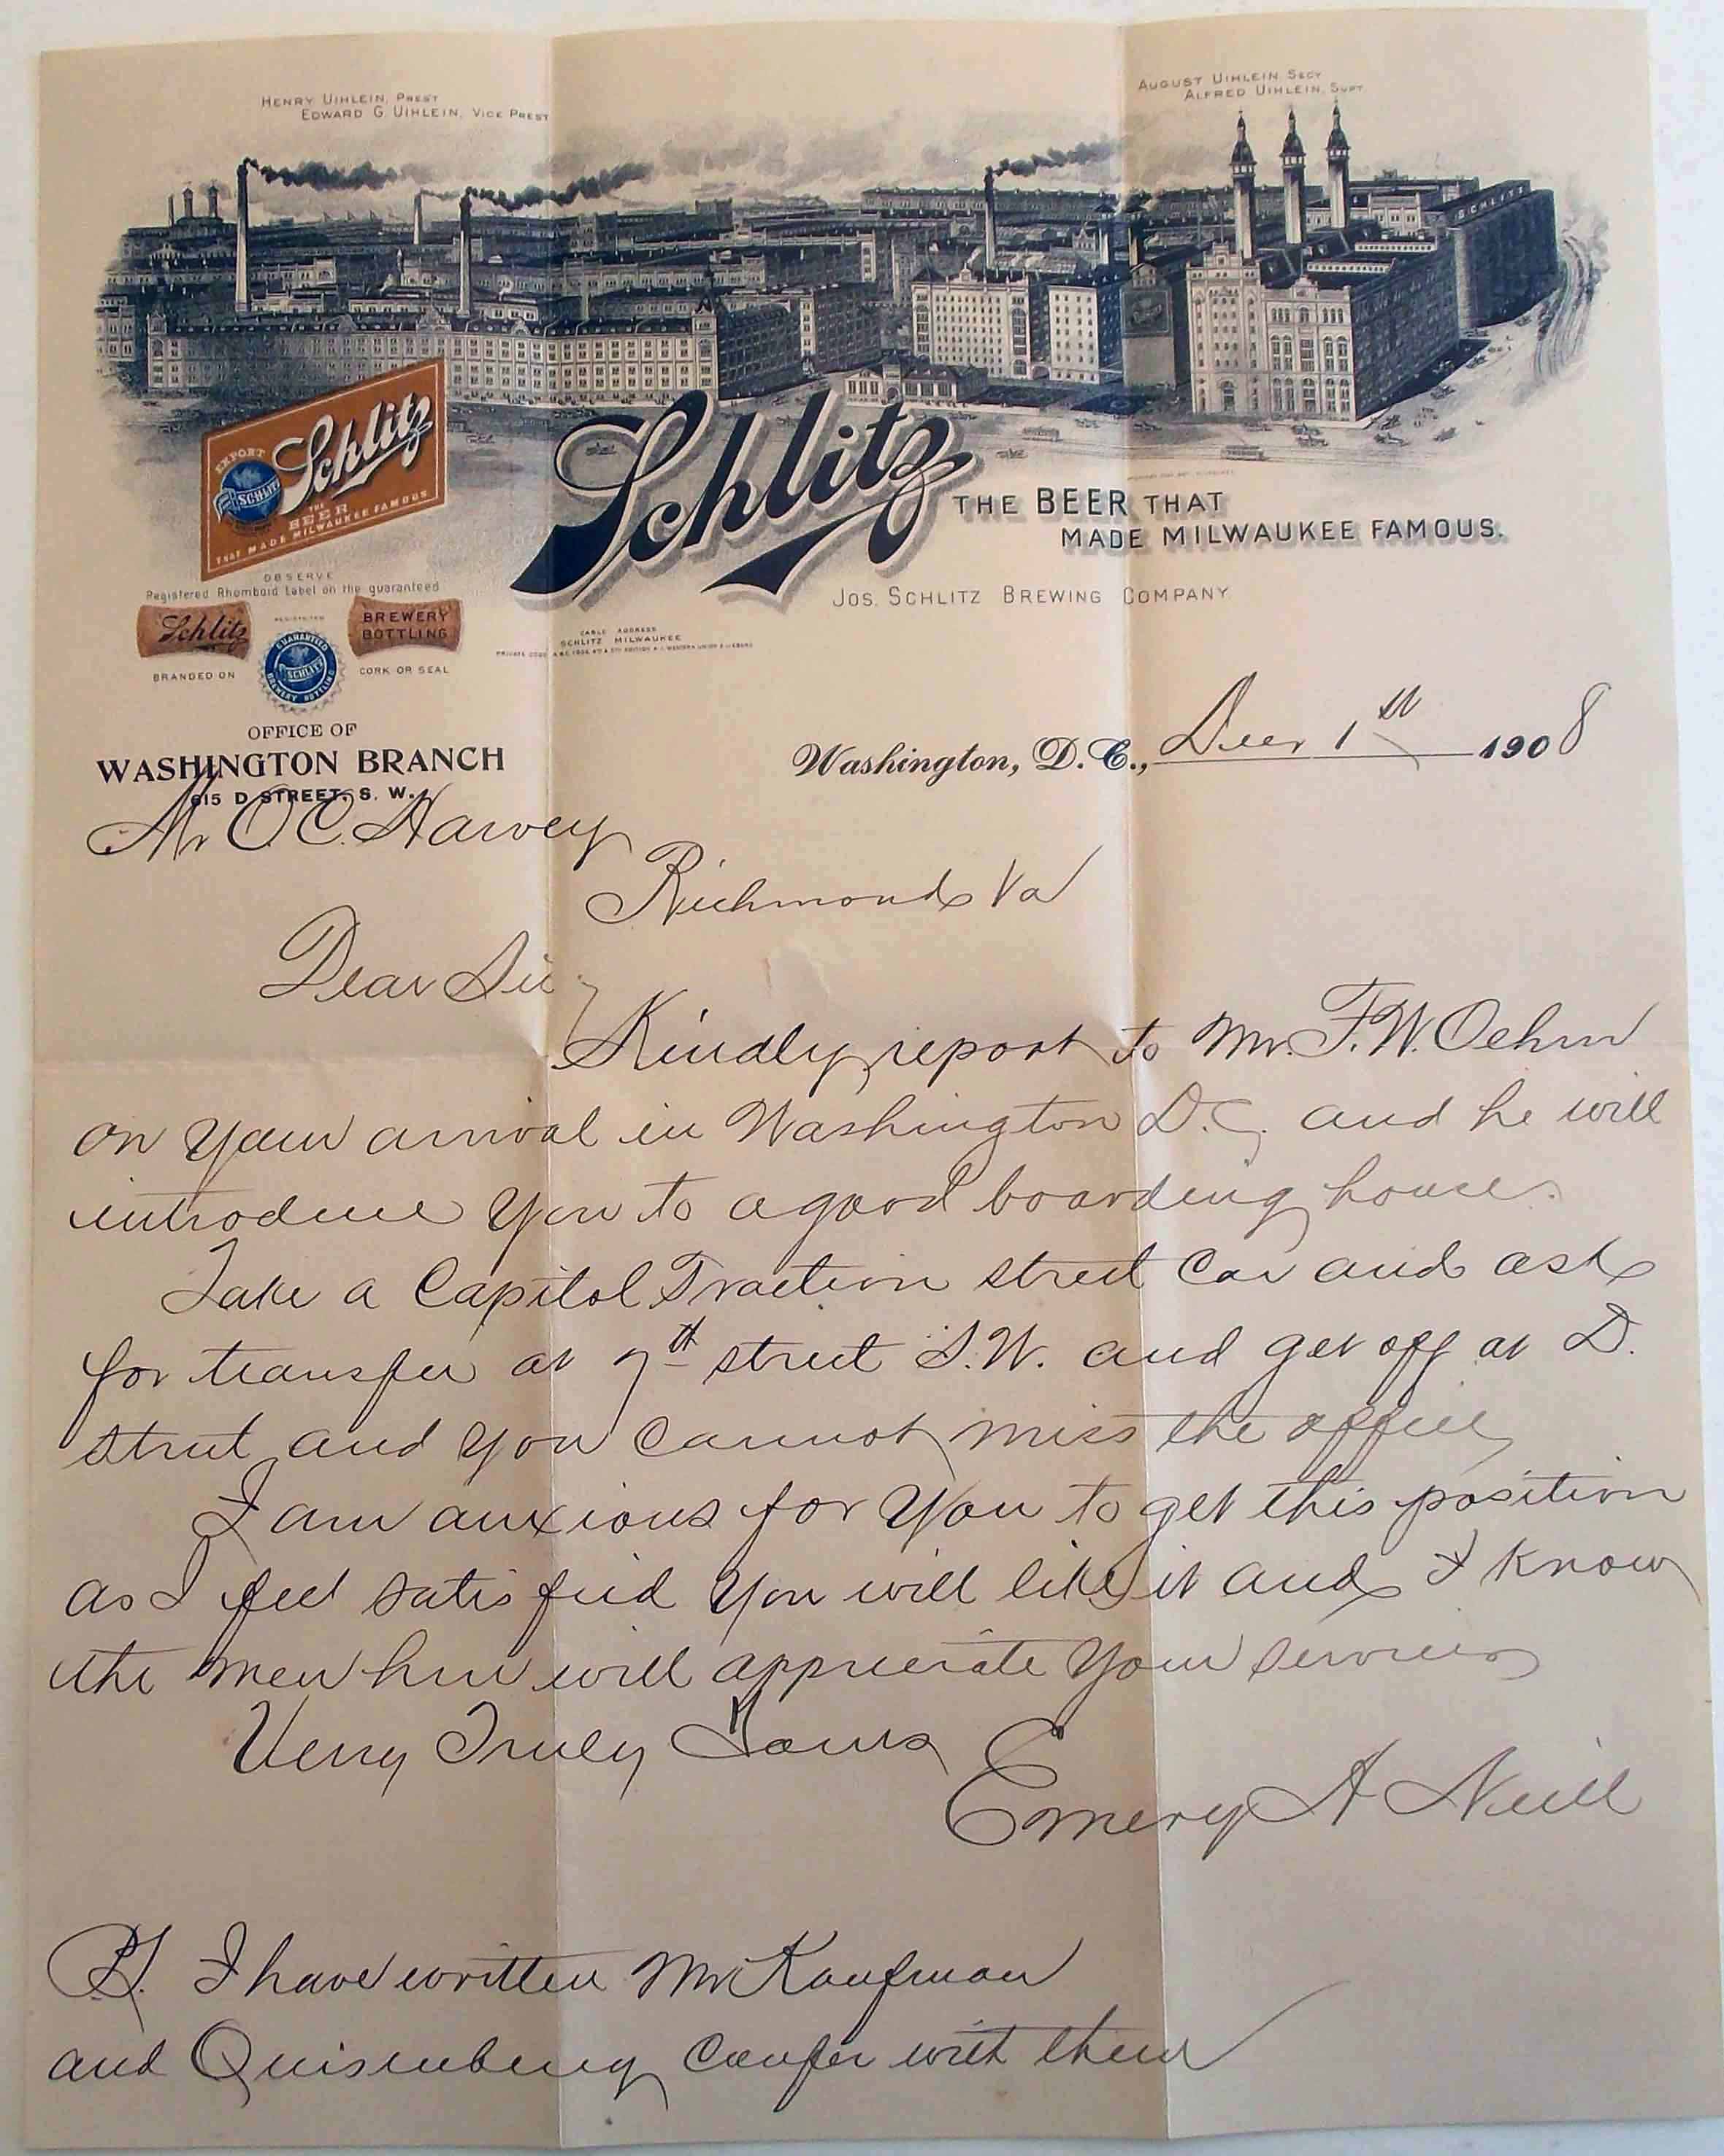 HENRY UIHLEIN, PREST
EDWARD G. UIHLEIN, VICE PREST
AUGUST UIHLEIN, SECY
ALFRED UIHLEIN, SUPT
SCHLITZ
EXPORT
SCHLITZ
Schlitz
THE
BEER
THAT MADE MILWAUKEE FAMOUS
Schlitz
THE BEER THAT
MADE MILWAUKEE FAMOUS.
JOS. SCHLITZ BREWING COMPANY
OBSERVE
Registered Rhomboid Label on the guaranteed
Schlitz
REGISTERED
BREWERY
BOTTLING
GUARANTEED
SCHLITZ
BREWERY BOTTLING
BRANDED ON
CORK OR SEAL
CABLE ADDRESS
SCHLITZ MILWAUKEE
OFFICE OF
WASHINGTON BRANCH
615 D STREET, S. W.
Washington, D.C., Decr 1th 1908
Mr O.C. Harvey
Richmond Va
Dear Sir,
Kindly report to Mr. F.W. Oehm
on your arrival in Washington D.C. and he will
introduce you to a good boarding house.
Take a Capitol Traction street car and ask
for transfer at 7th street S.W. and get off at D.
street and you cannot miss the office
I am anxious for you to get this position
as I feel satisfied you will like it and I know
the men here will appreciate your services
Very Truly Yours
Emery A Neill
P.S. I have written Mr Kaufman
and Quisenberry confer with them